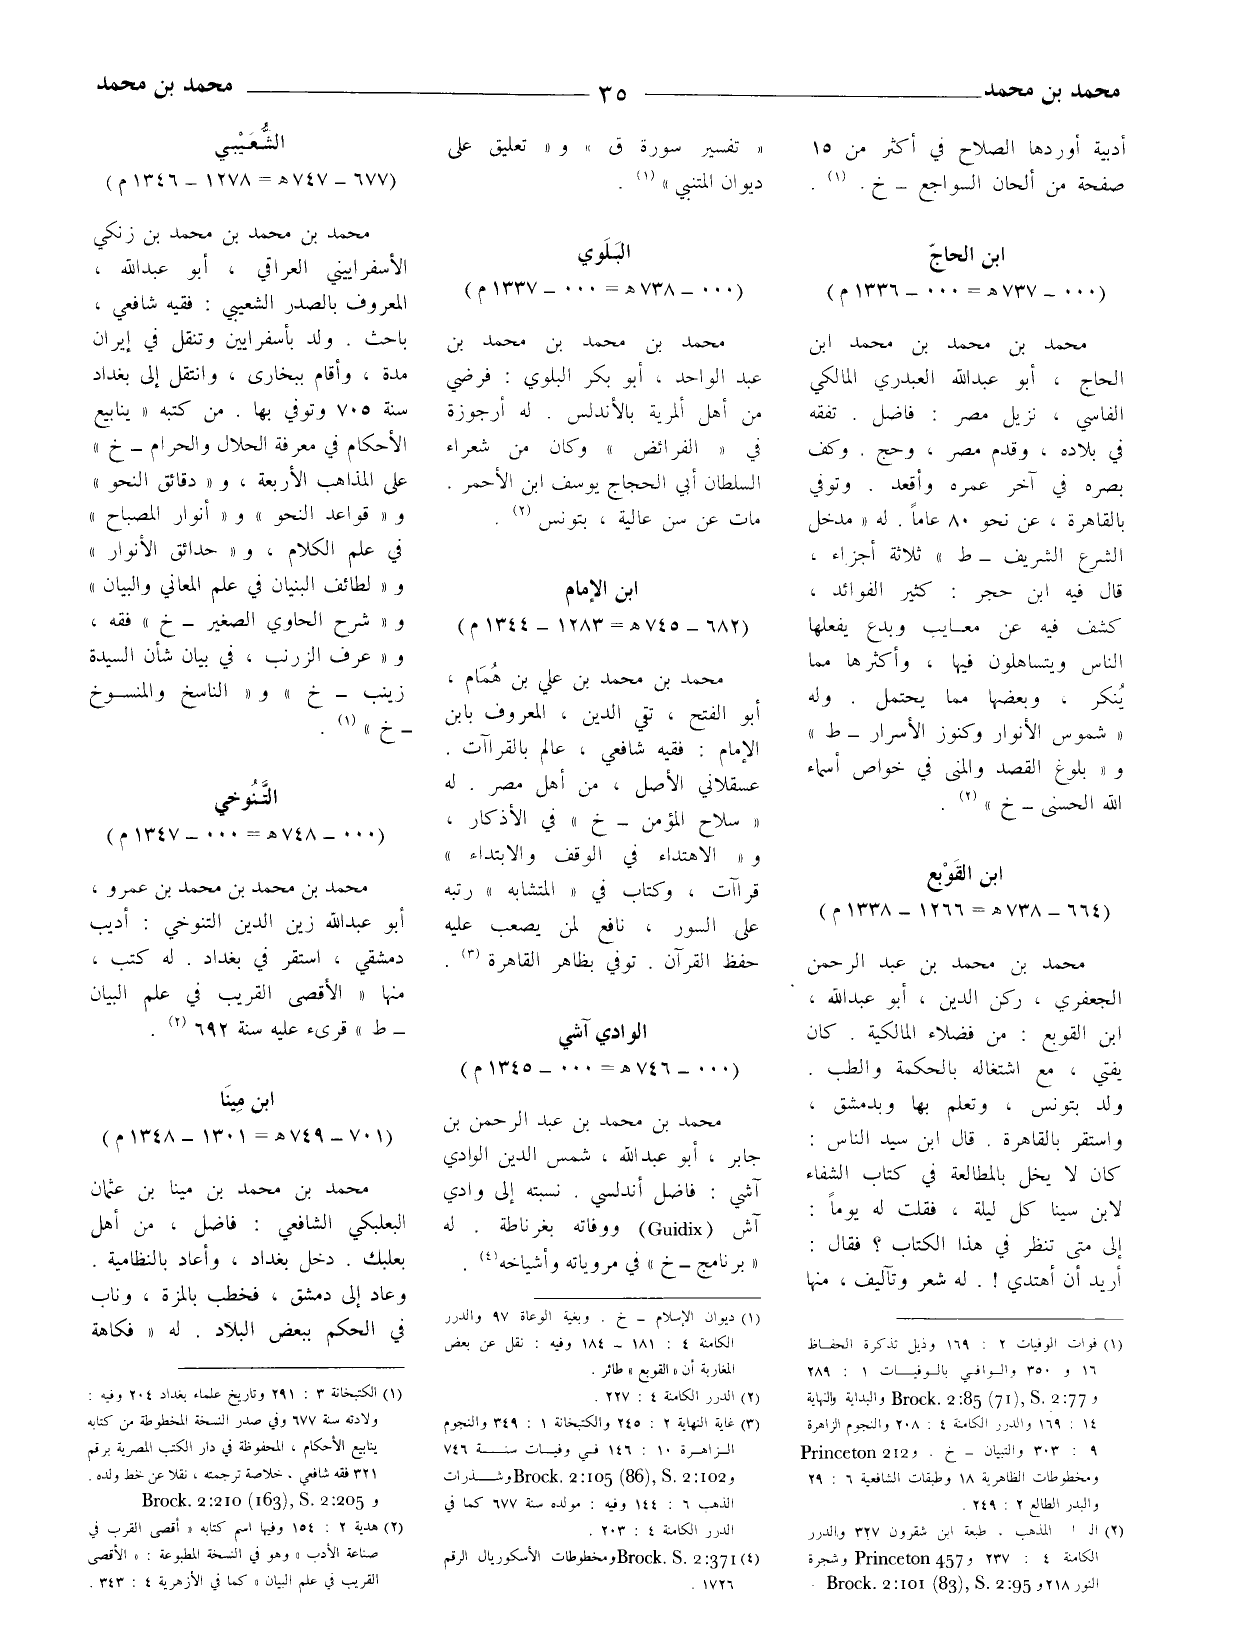 محمد بن محمد ٣٥ محمد بن محمد
أدبية أوردها الصلاح في أكثر من ١٥
صفحة من ألحان السواجع ــ خ . (١) .
ابن الحاجّ
(٠٠٠ ــ ٧٣٧ ھ = ٠٠٠ ــ ١٣٣٦ م)
محمد بن محمد بن محمد ابن
الحاج ، أبو عبدالله العبدري المالكي
الفاسي ، نزيل مصر : فاضل . تفقه
في بلاده ، وقدم مصر ، وحج . وكف
بصره في آخر عمره وأقعد . وتوفي
بالقاهرة ، عن نحو ٨٠ عاماً . له « مدخل
الشرع الشريف ــ ط » ثلاثة أجزاء ،
قال فيه ابن حجر : كثير الفوائد ،
كشف فيه عن معـايب وبدع يفعلها
الناس ويتساهلون فيها ، وأكثرها مما
يُنكر ، وبعضها مما يحتمل . وله
« شموس الأنوار وكنوز الأسرار ــ ط »
و « بلوغ القصد والمنى في خواص أسماء
الله الحسنى ــ خ » (٢) .
ابن القَوْبَع
(٦٦٤ ــ ٧٣٨ ھ = ١٢٦٦ ــ ١٣٣٨ م)
محمد بن محمد بن عبد الرحمن
الجعفري ، ركن الدين ، أبو عبدالله ،
ابن القوبع : من فضلاء المالكية . كان
يفتي ، مع اشتغاله بالحكمة والطب .
ولد بتونس ، وتعلم بها وبدمشق ،
واستقر بالقاهرة . قال ابن سيد الناس :
كان لا يخل بالمطالعة في كتاب الشفاء
لابن سينا كل ليلة ، فقلت له يوماً :
إلى متى تنظر في هذا الكتاب ؟ فقال :
أريد أن أهتدي ! . له شعر وتآليف ، منها
(١) فوات الوفيات ٢ : ١٦٩ وذيل تذكرة الحفـاظ
١٦ و ٣٥٠ والـوافـي بالـوفيـات ١ : ٢٨٩
و Brock. 2:85 (71), S. 2:77 والبداية والنهاية
١٤ : ١٦٩ والدرر الكامنة ٤ : ٢٠٨ والنجوم الزاهرة
٩ : ٣٠٣ والتبيان ــ خ . و Princeton 212
ومخطوطات الظاهرية ١٨ وطبقات الشافعية ٦ : ٢٩
والبدر الطالع ٢ : ٢٤٩ .
(٢) الـ المذهب . طبعة ابن شقرون ٣٢٧ والدرر
الكامنة ٤ : ٢٣٧ و Princeton 457 وشجرة
النور ٢١٨ و Brock. 2:101 (83), S. 2:95 .
« تفسير سورة ق » و « تعليق على
ديوان المتنبي » (١) .
البَلَوي
(٠٠٠ ــ ٧٣٨ ھ = ٠٠٠ ــ ١٣٣٧ م)
محمد بن محمد بن محمد بن
عبد الواحد ، أبو بكر البلوي : فرضي
من أهل ألمرية بالأندلس . له أرجوزة
في « الفرائض » وكان من شعراء
السلطان أبي الحجاج يوسف ابن الأحمر .
مات عن سن عالية ، بتونس (٢) .
ابن الإمام
(٦٨٢ ــ ٧٤٥ ھ = ١٢٨٣ ــ ١٣٤٤ م)
محمد بن محمد بن علي بن هُمَام ،
أبو الفتح ، تقي الدين ، المعروف بابن
الإمام : فقيه شافعي ، عالم بالقراآت .
عسقلاني الأصل ، من أهل مصر . له
« سلاح المؤمن ــ خ » في الأذكار ،
و « الاهتداء في الوقف والابتداء »
قراآت ، وكتاب في « المتشابه » رتبه
على السور ، نافع لمن يصعب عليه
حفظ القرآن . توفي بظاهر القاهرة (٣) .
الوادي آشي
(٠٠٠ ــ ٧٤٦ ھ = ٠٠٠ ــ ١٣٤٥ م)
محمد بن محمد بن عبد الرحمن بن
جابر ، أبو عبدالله ، شمس الدين الوادي
آشي : فاضل أندلسي . نسبته إلى وادي
آش (Guidix) ووفاته بغرناطة . له
« برنامج ــ خ » في مروياته وأشياخه (٤) .
(١) ديوان الإسلام ــ خ . وبغية الوعاة ٩٧ والدرر
الكامنة ٤ : ١٨١ ــ ١٨٤ وفيه : نقل عن بعض
المغاربة أن « القوبع » طائر .
(٢) الدرر الكامنة ٤ : ٢٢٧ .
(٣) غاية النهاية ٢ : ٢٤٥ والكتبخانة ١ : ٣٤٩ والنجوم
الـزاهـرة ١٠ : ١٤٦ فـي وفيـات سنـة ٧٤٦
و Brock. 2:105 (86), S. 2:102 وشـذرات
الذهب ٦ : ١٤٤ وفيه : مولده سنة ٦٧٧ كما في
الدرر الكامنة ٤ : ٢٠٣ .
(٤) Brock. S. 2:371 ومخطوطات الأسكوريال الرقم
١٧٢٦ .
الشُّعَيْبي
(٦٧٧ ــ ٧٤٧ ھ = ١٢٧٨ ــ ١٣٤٦ م)
محمد بن محمد بن محمد بن زنكي
الأسفراييني العراقي ، أبو عبدالله ،
المعروف بالصدر الشعيبي : فقيه شافعي ،
باحث . ولد بأسفرايين وتنقل في إيران
مدة ، وأقام ببخارى ، وانتقل إلى بغداد
سنة ٧٠٥ وتوفي بها . من كتبه « ينابيع
الأحكام في معرفة الحلال والحرام ــ خ »
على المذاهب الأربعة ، و « دقائق النحو »
و « قواعد النحو » و « أنوار المصباح »
في علم الكلام ، و « حدائق الأنوار »
و « لطائف البنيان في علم المعاني والبيان »
و « شرح الحاوي الصغير ــ خ » فقه ،
و « عرف الزرنب ، في بيان شأن السيدة
زينب ــ خ » و « الناسخ والمنسـوخ
ــ خ » (١) .
التَّنُوخي
(٠٠٠ ــ ٧٤٨ ھ = ٠٠٠ ــ ١٣٤٧ م)
محمد بن محمد بن محمد بن عمرو ،
أبو عبدالله زين الدين التنوخي : أديب
دمشقي ، استقر في بغداد . له كتب ،
منها « الأقصى القريب في علم البيان
ــ ط » قرىء عليه سنة ٦٩٢ (٢) .
ابن مِينَا
(٧٠١ ــ ٧٤٩ ھ = ١٣٠١ ــ ١٣٤٨ م)
محمد بن محمد بن مينا بن عثمان
البعلبكي الشافعي : فاضل ، من أهل
بعلبك . دخل بغداد ، وأعاد بالنظامية .
وعاد إلى دمشق ، فخطب بالمزة ، وناب
في الحكم ببعض البلاد . له « فكاهة
(١) الكتبخانة ٣ : ٢٩١ وتاريخ علماء بغداد ٢٠٤ وفيه :
ولادته سنة ٦٧٧ وفي صدر النسخة المخطوطة من كتابه
ينابيع الأحكام ، المحفوظة في دار الكتب المصرية برقم
٣٢١ فقه شافعي ، خلاصة ترجمته ، نقلا عن خط ولده .
و Brock. 2:210 (163), S. 2:205
(٢) هدية ٢ : ١٥٤ وفيها اسم كتابه « أقصى القرب في
صناعة الأدب » وهو في النسخة المطبوعة : « الأقصى
القريب في علم البيان » كما في الأزهرية ٤ : ٣٤٣ .